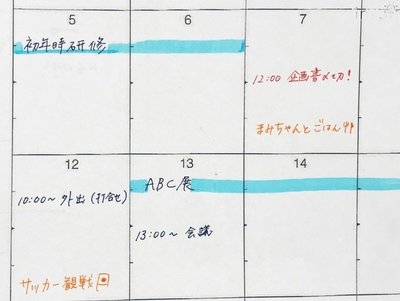 5 6 7
初年時研修
12:00 企画書〆切!
まみちゃんとごはん
12 13 14
ABC展
10:00〜外出(打合せ)
13:00〜 会議
サッカー観戦